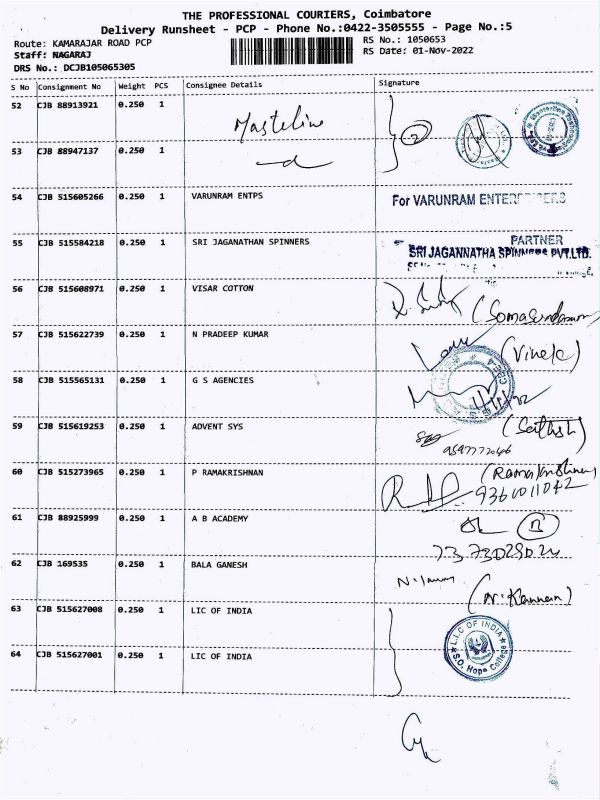 THE PROFESSIONAL COURIERS, Coimbatore
Delivery Runsheet - PCP - Phone No.:0422-3505555 - Page No.:5
Route: KAMARAJAR ROAD PCP
RS No.: 1050653
Staff: NAGARAJ
RS Date: 01-Nov-2022
DRS No.: DCJB105065305
S No Consignment No Weight PCS Consignee Details Signature
52 CJB 88913921 0.250 1
Masteline
2
53 CJB 88947137 0.250 1
54 CJB 515605266 0.250 1 VARUNRAM ENTPS For VARUNRAM ENTERPRISES
PARTNER
55 CJB 515584218 0.250 1 SRI JAGANATHAN SPINNERS SRI JAGANNATHA SPINNERS PVT.LTD.
56 CJB 515608971 0.250 1 VISAR COTTON
(Somasundaram
57 CJB 515622739 0.250 1 N PRADEEP KUMAR
58 CJB 515565131 0.250 1 G S AGENCIES
59 CJB 515619253 0.250 1 ADVENT SYS (Sathish)
60 CJB 515273965 0.250 1 P RAMAKRISHNAN (Ramakrishnan)
9361011042
61 CJB 88925999 0.250 1 A B ACADEMY
62 CJB 169535 0.250 1 BALA GANESH
(N. Kannan)
63 CJB 515627008 0.250 1 LIC OF INDIA
L.I.C OF INDIA
S.O, Hope College
64 CJB 515627001 0.250 1 LIC OF INDIA